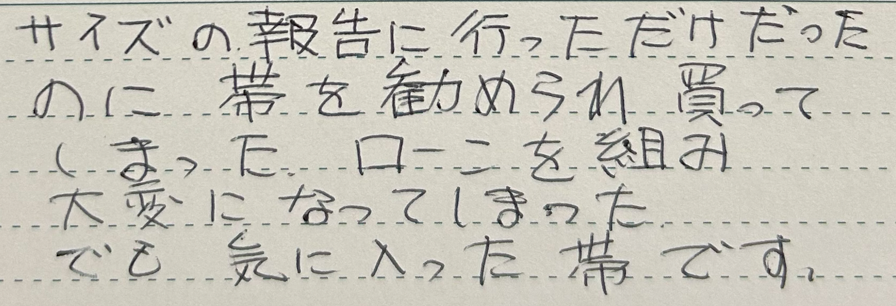 サイズの報告に行っただけだった
のに 帯を勧められ 買って
しまった。ローンを組み
大変になってしまった
でも 気に入った 帯です。